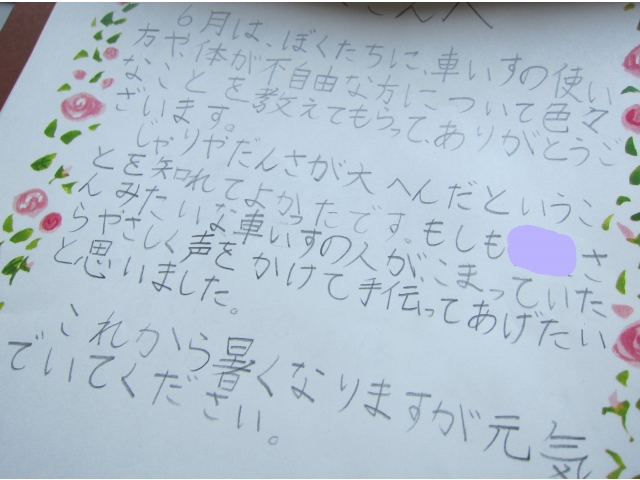 さんへ
6月は、ぼくたちに、車いすの使い
方や体が不自由な方について色々
なことを教えてもらって、ありがとうご
ざいます。
じゃりやだんさが大へんだというこ
とを知れてよかったです。もしも さ
んみたいな車いすの人が、こまっていた
らやさしく声をかけて手伝ってあげたい
と思いました。
これから暑くなりますが元気
でいてください。